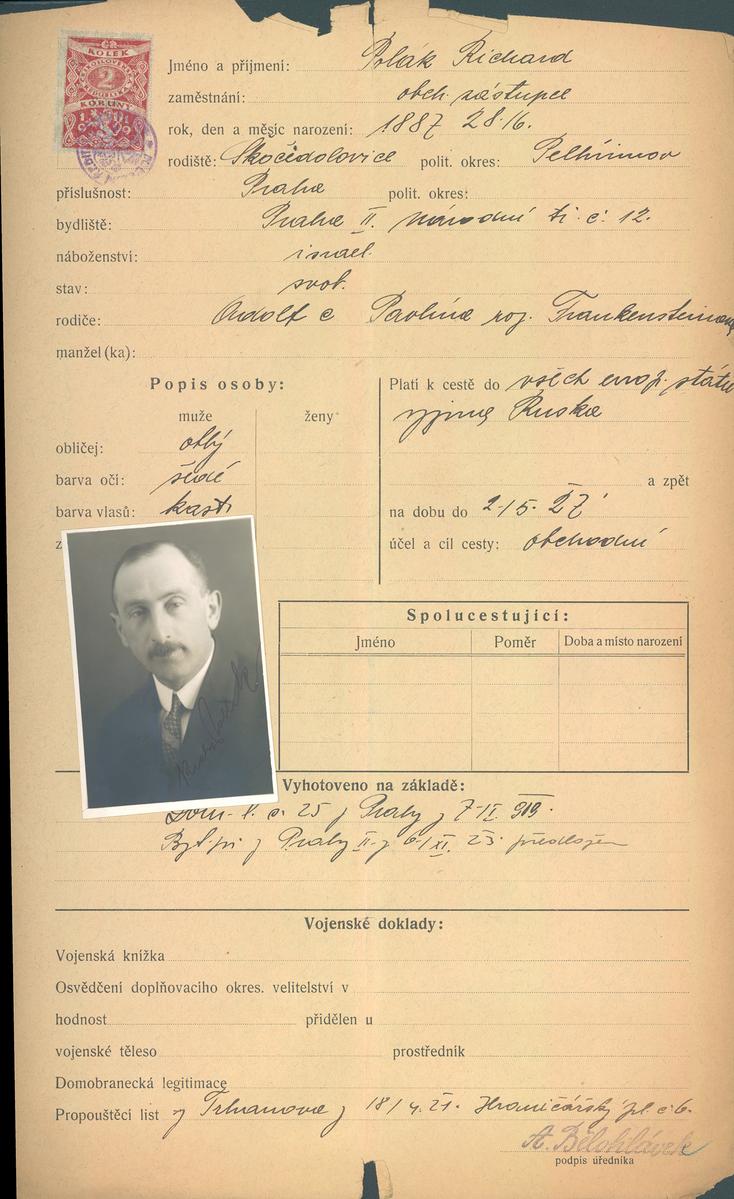 ČR
KOLEK
2
KORUNY
Jméno a příjmení: Polák Richard
zaměstnání: obch. zástupce
rok, den a měsíc narození: 1887 28./6.
rodiště: Skočidolovice polit. okres: Pelhřimov
příslušnost: Praha polit. okres:
bydliště: Praha II. Národní tř. č. 12.
náboženství: israel.
stav: svob.
rodiče: Adolf a Pavlína roz. Frankensteinová
manžel (ka):
Popis osoby:
muže ženy
obličej: oblý
barva očí: šedé
barva vlasů: kašt.
Platí k cestě do všech evrop. států
vyjma Ruska
a zpět
na dobu do 2./5. 27
účel a cíl cesty: obchodní
Spolucestující:
Jméno Poměr Doba a místo narození
Vyhotoveno na základě:
Dom. l. č. 25 z Prahy z 7-IX 919.
z Prahy II z 6/XI. 23 předložen
Vojenské doklady:
Vojenská knížka
Osvědčení doplňovacího okres. velitelství v
hodnost přidělen u
vojenské těleso prostředník
Domobranecká legitimace
Propouštěcí list z Trhanova z 18/4. 21. Hraničářský pl. č. 6.
A. Bělohlávek
podpis úředníka